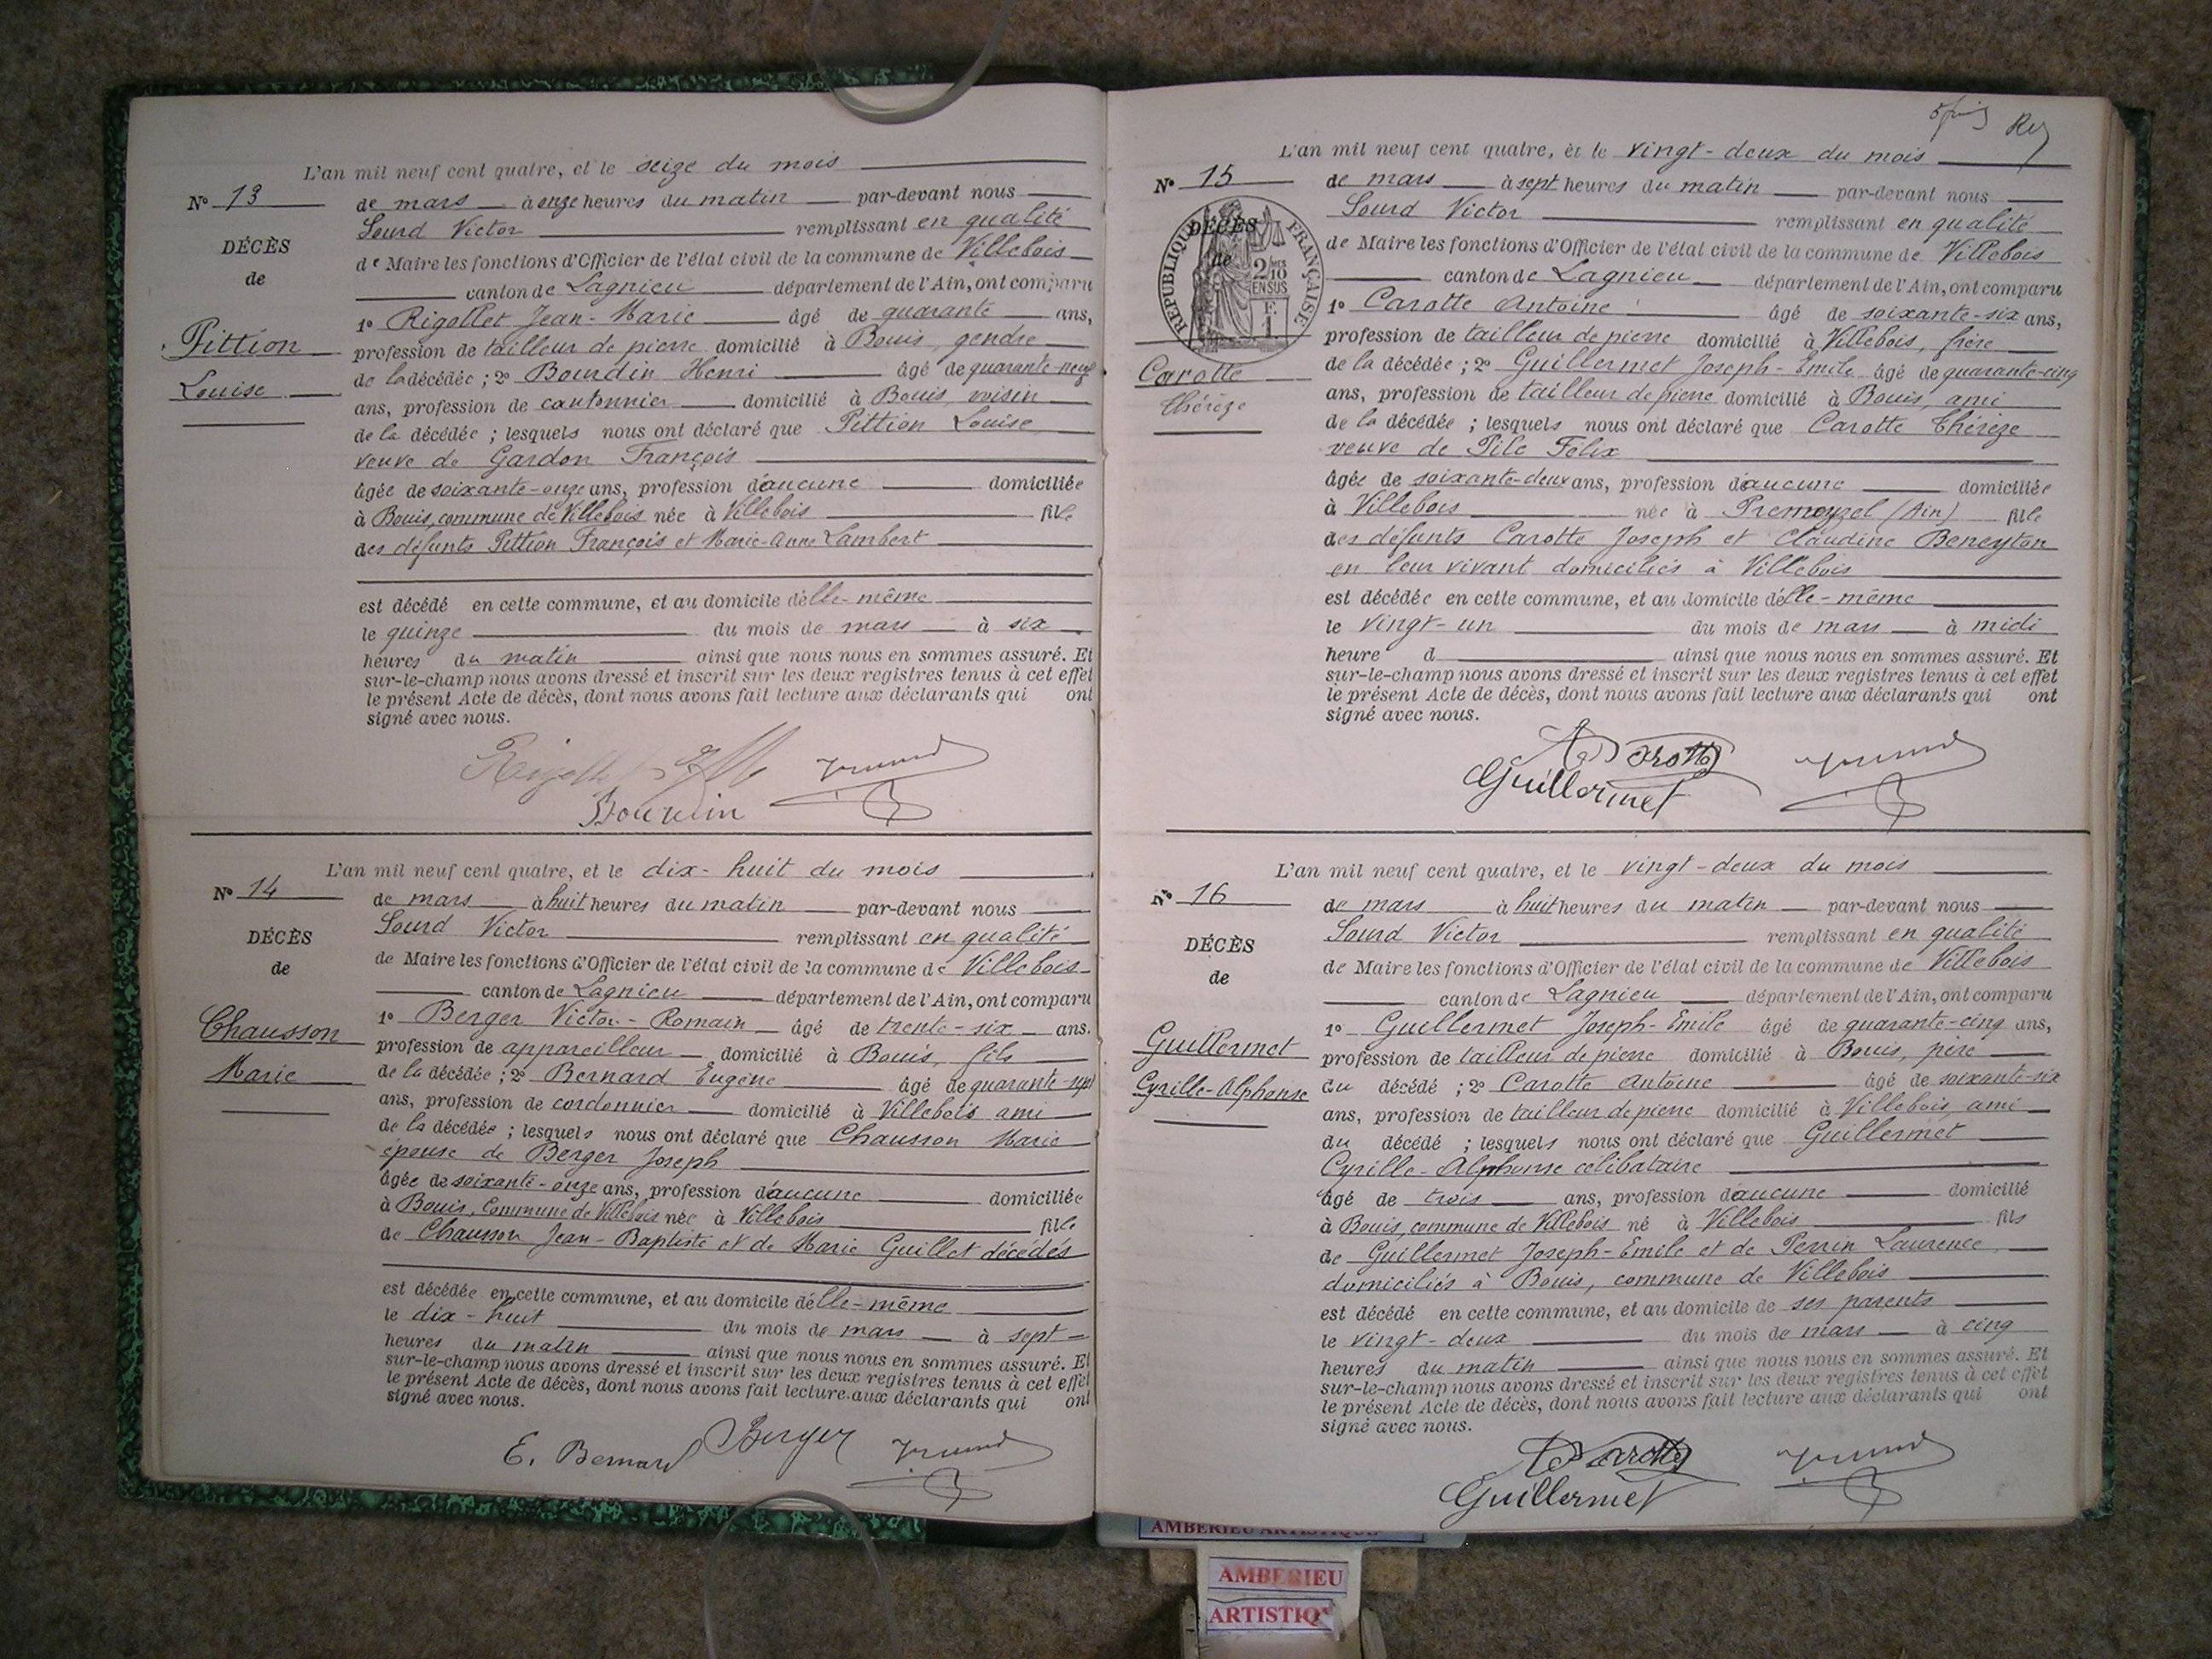 L'an mil neuf cent quatre, et le seize du mois
N° 13
de mars à onze heures du matin par-devant nous
Sourd Victor remplissant en qualité
DÉCÈS
de Maire les fonctions d'Officier de l'état civil de la commune de Villebois
de
canton de Lagnieu département de l'Ain, ont comparu
1° Rigollet Jean-Marie âgé de quarante ans,
Pittion
profession de tailleur de pierre domicilié à Bouis, gendre
Louise
de la décédée ; 2° Bourdin Henri âgé de quarante-neuf
ans, profession de cantonnier domicilié à Bouis, voisin
de la décédée ; lesquels nous ont déclaré que Pittion Louise
veuve de Gardon François
âgée de soixante-onze ans, profession d'aucune domiciliée
à Bouis, commune de Villebois née à Villebois fille
des défunts Pittion François et Marie-Anne Lambert
est décédé en cette commune, et au domicile d'elle-même
le quinze du mois de mars à six
heures du matin ainsi que nous nous en sommes assuré. Et
sur-le-champ nous avons dressé et inscrit sur les deux registres tenus à cet effet
le présent Acte de décès, dont nous avons fait lecture aux déclarants qui ont
signé avec nous.
Bourdin
L'an mil neuf cent quatre, et le dix-huit du mois
N° 14
de mars à huit heures du matin par-devant nous
Sourd Victor remplissant en qualité
DÉCÈS
de Maire les fonctions d'Officier de l'état civil de la commune de Villebois
de
canton de Lagnieu département de l'Ain, ont comparu
1° Berger Victor-Romain âgé de trente-six ans.
Chausson
profession de appareilleur domicilié à Bouis, fils
Marie
de la décédée ; 2° Bernard Eugène âgé de quarante-sept
ans, profession de cordonnier domicilié à Villebois ami
de la décédée ; lesquels nous ont déclaré que Chausson Marie
épouse de Berger Joseph
âgée de soixante-onze ans, profession d'aucune domiciliée
à Bouis, Commune de Villebois née à Villebois fille
de Chausson Jean-Baptiste et de Marie Guillet décédés
est décédée en cette commune, et au domicile d'elle-même
le dix-huit du mois de mars à sept
heures du matin ainsi que nous nous en sommes assuré. Et
sur-le-champ nous avons dressé et inscrit sur les deux registres tenus à cet effet
le présent Acte de décès, dont nous avons fait lecture aux déclarants qui ont
signé avec nous.
E. Bernard Berger
L'an mil neuf cent quatre, et le vingt-deux du mois
N° 15
de mars à sept heures du matin par-devant nous
Sourd Victor remplissant en qualité
DÉCÈS
de
RÉPUBLIQUE FRANÇAISE
2/10 EN SUS
F. 1
de Maire les fonctions d'Officier de l'état civil de la commune de Villebois
canton de Lagnieu département de l'Ain, ont comparu
1° Carotte Antoine âgé de soixante-six ans,
profession de tailleur de pierre domicilié à Villebois, frère
Carotte
de la décédée ; 2° Guillermet Joseph-Emile âgé de quarante-cinq
Thérèze
ans, profession de tailleur de pierre domicilié à Bouis, ami
de la décédée ; lesquels nous ont déclaré que Carotte Thérèze
veuve de Pile Félix
âgée de soixante-deux ans, profession d'aucune domiciliée
à Villebois née à Premeyzel (Ain) fille
des défunts Carotte Joseph et Claudine Beneyton
en leur vivant domiciliés à Villebois
est décédée en cette commune, et au domicile d'elle-même
le vingt-un du mois de mars à midi
heure d ainsi que nous nous en sommes assuré. Et
sur-le-champ nous avons dressé et inscrit sur les deux registres tenus à cet effet
le présent Acte de décès, dont nous avons fait lecture aux déclarants qui ont
signé avec nous.
Carotte
Guillermet
L'an mil neuf cent quatre, et le vingt-deux du mois
N° 16
de mars à huit heures du matin par-devant nous
Sourd Victor remplissant en qualité
DÉCÈS
de Maire les fonctions d'Officier de l'état civil de la commune de Villebois
de
canton de Lagnieu département de l'Ain, ont comparu
1° Guillermet Joseph-Emile âgé de quarante-cinq ans,
Guillermet
profession de tailleur de pierre domicilié à Bouis, père
Cyrille-Alphonse
du décédé ; 2° Carotte Antoine âgé de soixante-six
ans, profession de tailleur de pierre domicilié à Villebois, ami
du décédé ; lesquels nous ont déclaré que Guillermet
Cyrille-Alphonse célibataire
âgé de trois ans, profession d'aucune domicilié
à Bouis, commune de Villebois né à Villebois fils
de Guillermet Joseph-Emile et de Perrin Laurence,
domiciliés à Bouis, commune de Villebois
est décédé en cette commune, et au domicile de ses parents
le vingt-deux du mois de mars à cinq
heures du matin ainsi que nous nous en sommes assuré. Et
sur-le-champ nous avons dressé et inscrit sur les deux registres tenus à cet effet
le présent Acte de décès, dont nous avons fait lecture aux déclarants qui ont
signé avec nous.
Carotte
Guillermet
AMBERIEU ARTISTIQUE
AMBERIEU
ARTISTIQ